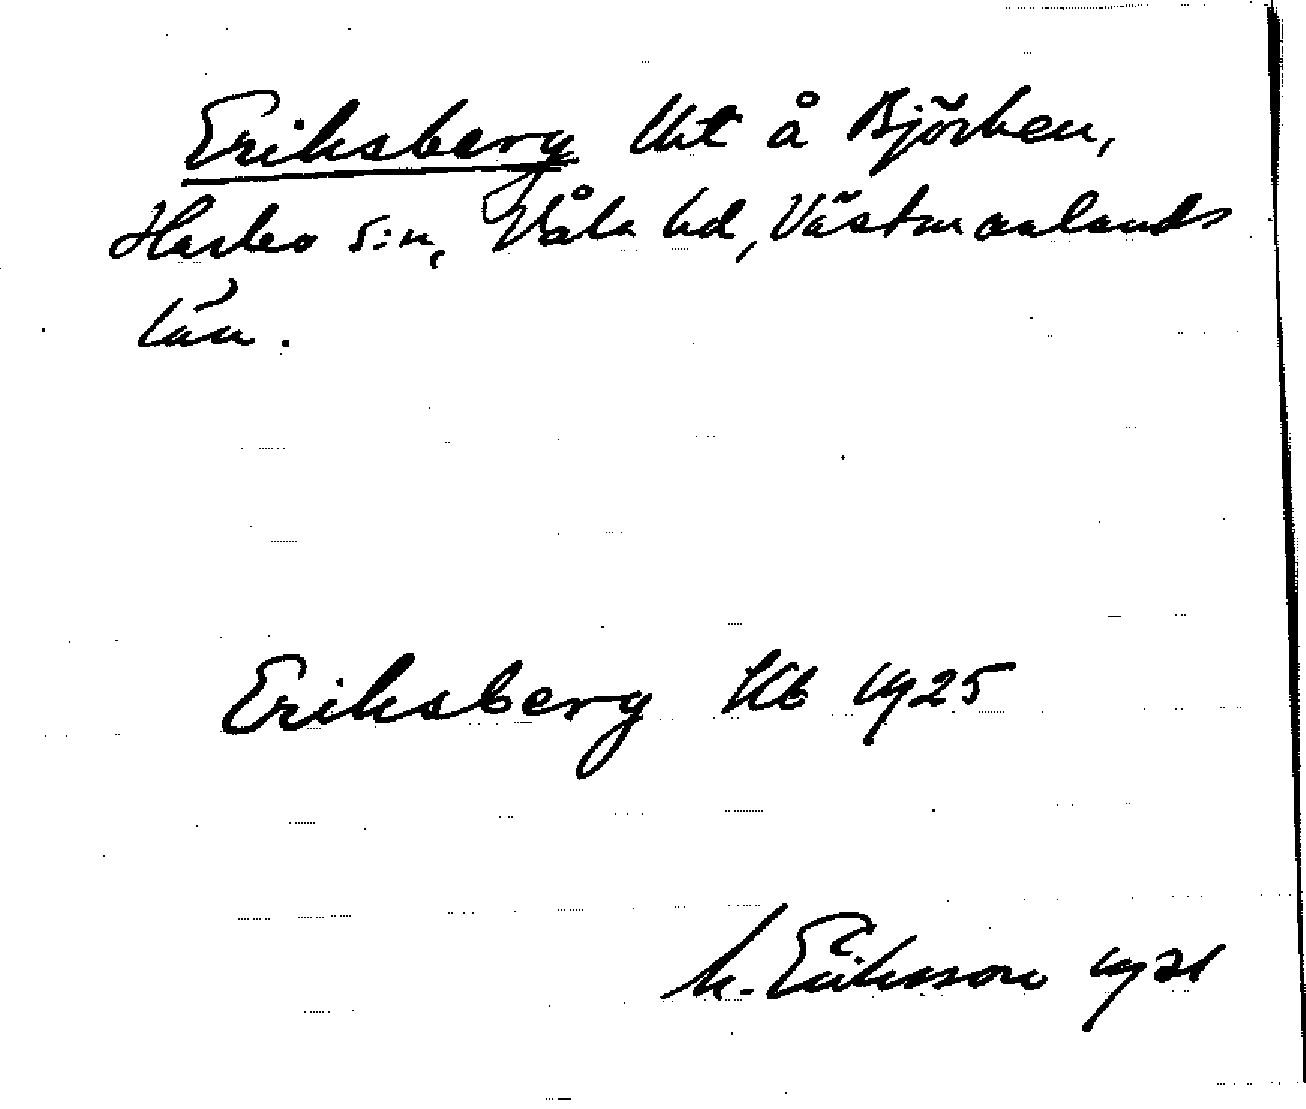 Eriksberg lht å Björken,
Harbo s:n, Våla hd, Västmanlands
län.
Eriksberg Kb 1925
M. Eriksson 1931